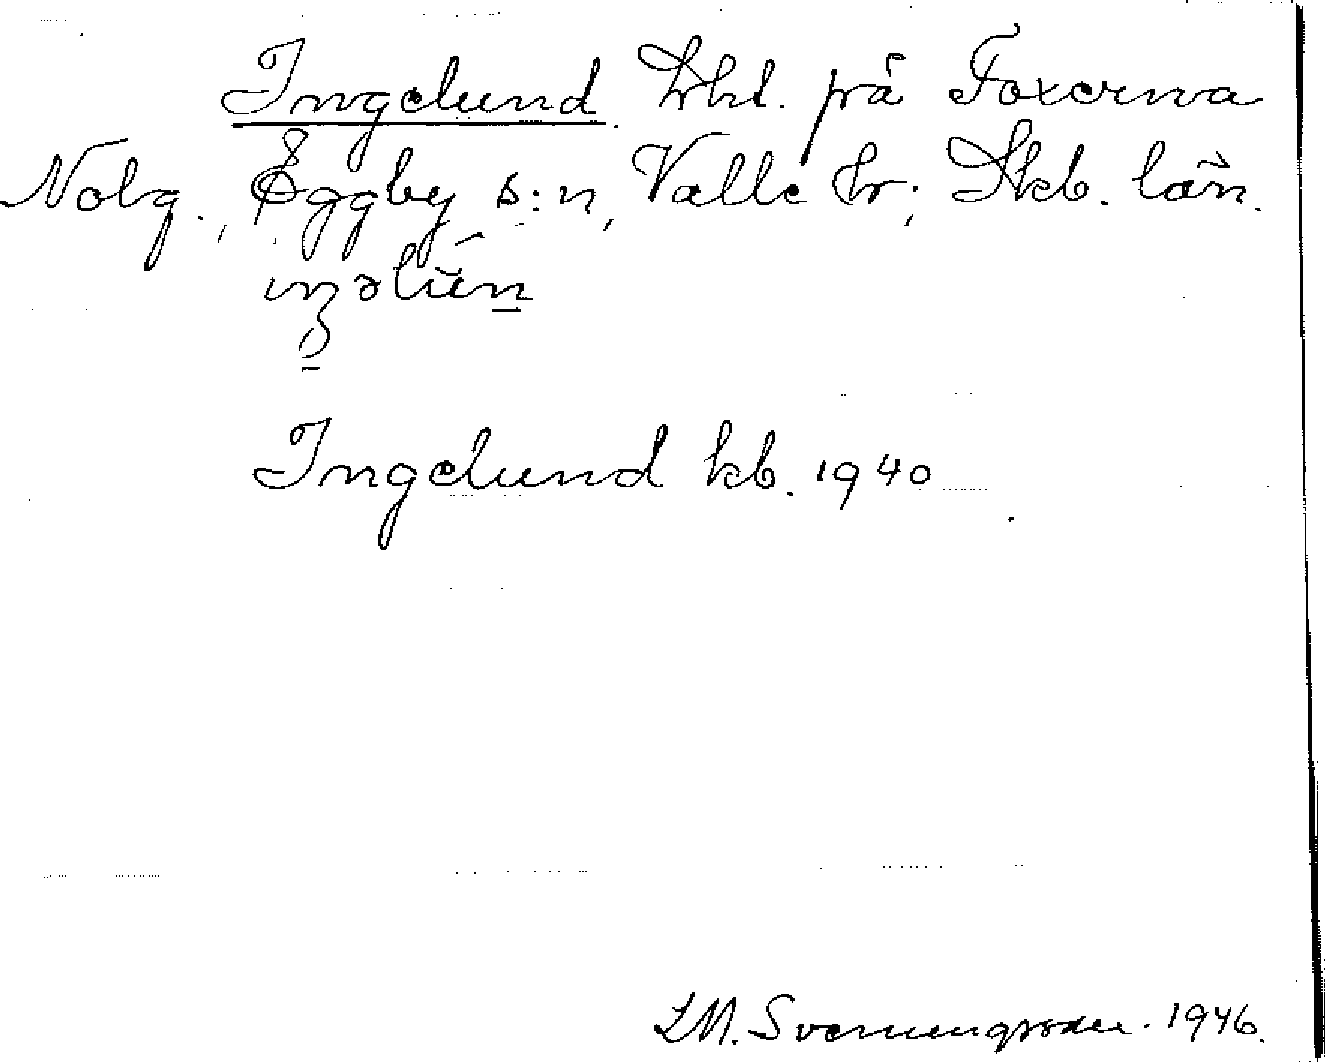 Ingelund. lht. på Foxerna
Nolg., Eggby s:n, Valle hr; Skb. län.
Ingelund kb. 1940
L M. Svennungsson. 1946.